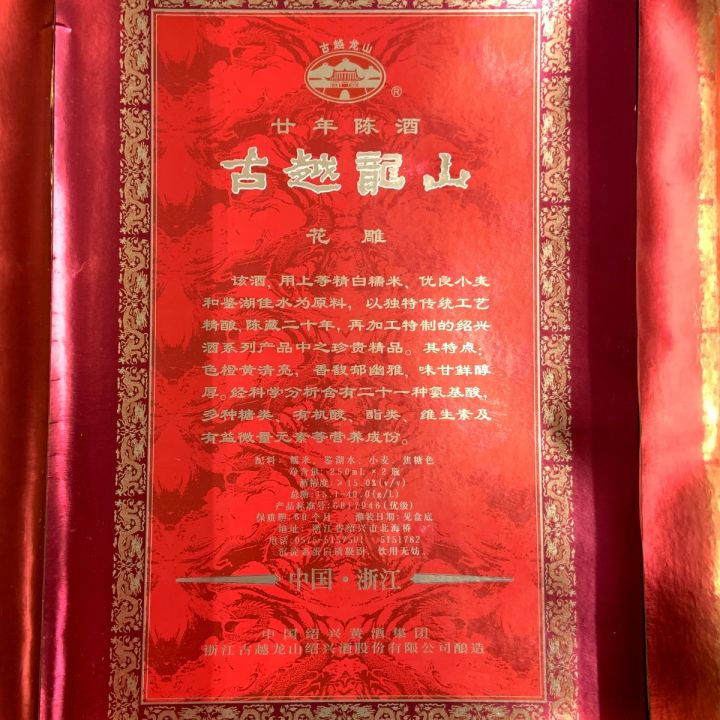 古越龙山
®
廿年陈酒
古越龍山
花雕
该酒，用上等精白糯米、优良小麦
和鉴湖佳水为原料，以独特传统工艺
精酿，陈藏二十年，再加工特制的绍兴
酒系列产品中之珍贵精品。其特点：
色橙黄清亮，香馥郁幽雅，味甘鲜醇
厚。经科学分析含有二十一种氨基酸，
多种糖类、有机酸、酯类、维生素及
有益微量元素等营养成份。
配料：糯米、鉴湖水、小麦、焦糖色
净含量：250mL×2瓶
酒精度：≥15.0%(v/v)
总糖：15.1-40.0(g/L)
产品标准号：GB17946(优级)
保质期：60个月 灌装日期：见盒底
地址：浙江省绍兴市北海桥
电话：0575-5157501 5151782
沉淀物蛋白质凝固、饮用无妨。
中国·浙江
中国绍兴黄酒集团
浙江古越龙山绍兴酒股份有限公司酿造